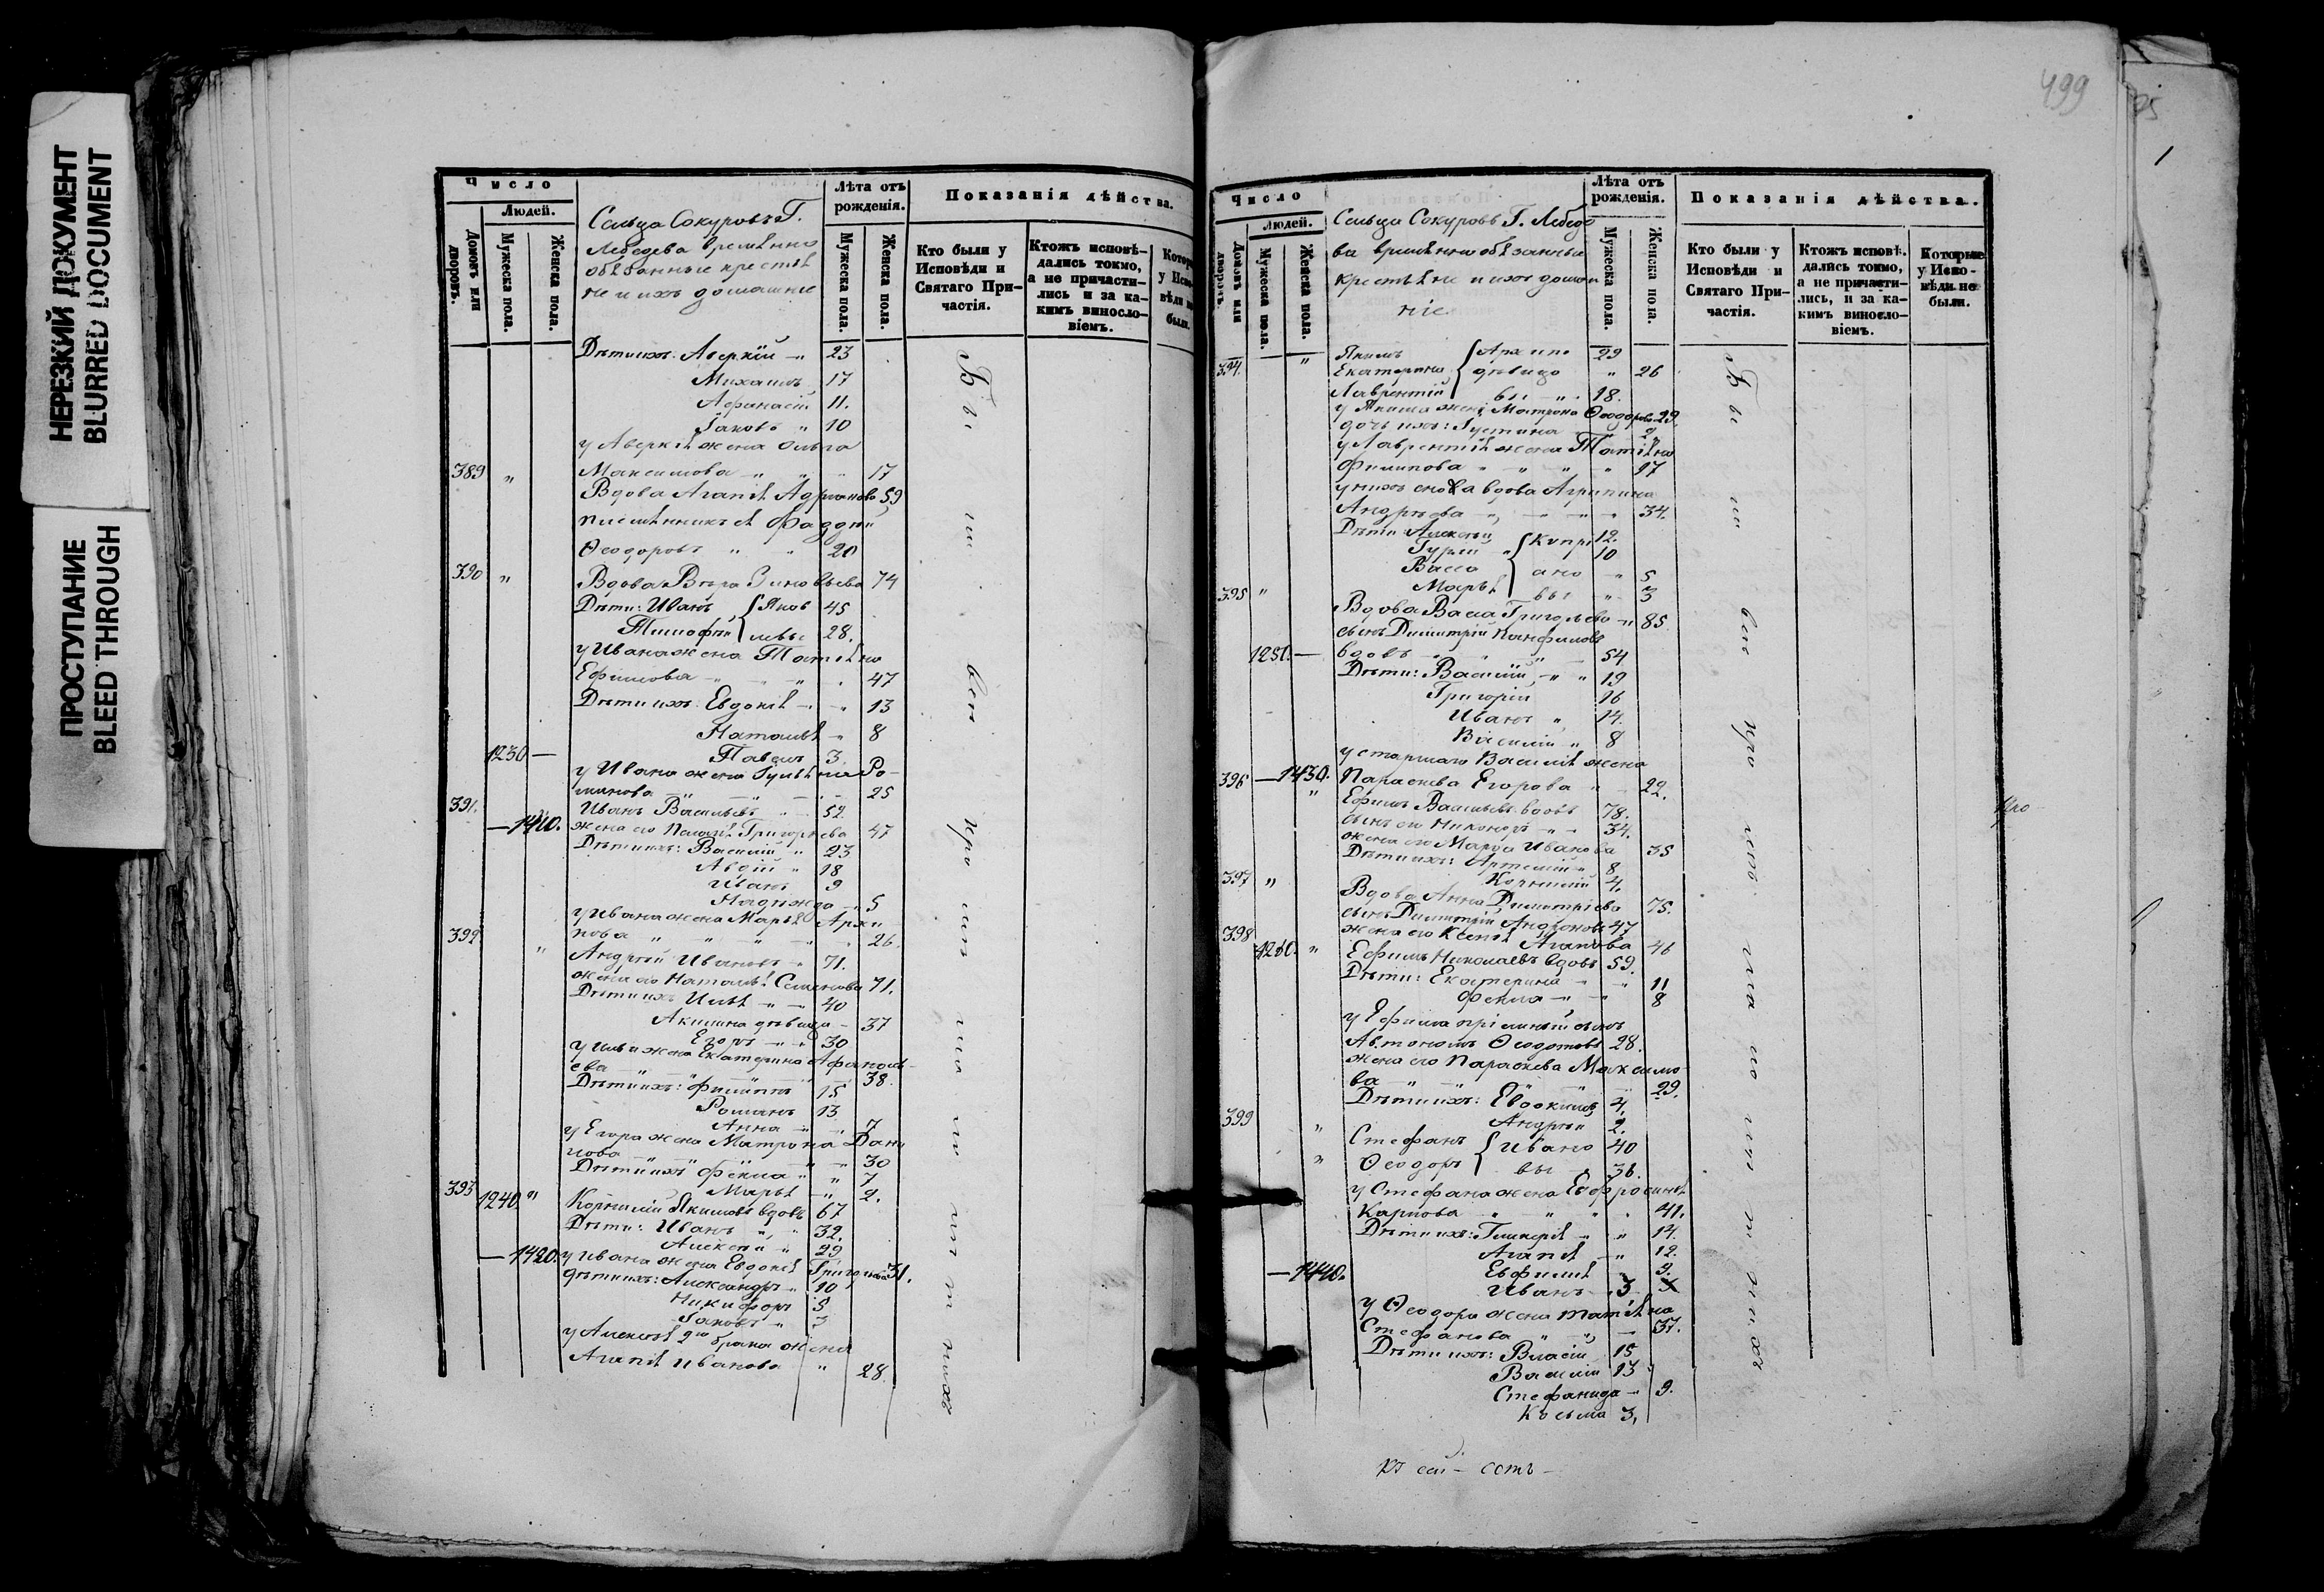 НЕРЕЗКИЙ ДОКУМЕНТ
BLURRED DOCUMENT
ПРОСТУПАНИЕ
BLEED THROUGH
Число
Людей.
Домовъ или дворовъ.
Мужеска пола.
Женска пола.
Сельца Сокуровъ Г.
Лебедева временно
обязанные крестья
не и ихъ домашніе
Лѣта отъ рожденія.
Мужеска пола.
Женска пола.
Показанія дѣйства.
Кто были у Исповѣди и Святаго Причастія.
Ктожъ исповѣдались токмо, а не причастились и за какимъ винословіемъ.
Дѣти ихъ: Аверкій 23
Михаилъ 17
Афанасій 11.
Іаковъ 10
у Аверкія жена Ольга
389 Максимова 17
Вдова Агапія Адріанова 59
племянникъ ея Фаддей
Ѳеодоровъ 20
390 Вдова Вѣра Зиновьева 74
Дѣти: Иванъ Яков 45
Тимофей левы 28.
у Ивана жена Татіана
Ефимова 47
Дѣти ихъ Евдокія 13
Наталія 8
1230 — Павелъ 3
у Ивана жена Іуліанія Ро-
манова 25
391. Иванъ Васильевъ 52
— 1410. жена его Пелагія Григорьева 47
Дѣти ихъ: Василій 23
Авдій 18
Иванъ 9
Надежда 5
у Ивана жена Марья Архи
392 пова 26.
Андрей Ивановъ 71.
жена его Наталія Семенова 71.
Дѣти ихъ Илья 40
Акилина дѣвица 37
Егоръ 30
у Ильи жена Екатерина Афанась-
ева 38.
Дѣти ихъ: Филиппъ 15
Романъ 13
Анна 7
у Егора жена Матрона Дани
лова 30
Дѣти ихъ Фекла 7
Марья 2.
393 1240. Корнилій Якимовъ вдовъ 67
Дѣти: Иванъ 32.
Алексѣй 29
— 1420. у Ивана жена Евдокія Григорьева 31.
дѣти ихъ: Александръ 10
Никифоръ 5
Іаковъ 3
у Алексѣя 2го брака жена
Агапія Иванова 28.
Бы ли вси про
499
Число
Людей.
Домовъ или дворовъ.
Мужеска пола.
Женска пола.
Сельца Сокуровъ Г. Лебеде
ва временно обязанные
крестьяне и ихъ домаш
ніе
Лѣта отъ рожденія.
Мужеска пола.
Женска пола.
Показанія дѣйства.
Кто были у Исповѣди и Святаго Причастія.
Ктожъ исповѣдались токмо, а не причастились, и за какимъ винословіемъ.
Которые у Исповѣди не были.
394. Якимъ Архипо 29
Екатерина дѣвица 26
Лаврентій вы 18.
у Якима жена Матрона Ѳеодоров 29.
дочь ихъ: Іустина 2.
у Лаврентія жена Татіана
Филипова 17
у нихъ сноха вдова Агрипина
Андреева 34.
Дѣти Алексѣй Кипрі 12.
Гурій 10
Васса ано 5
Марья вы 3
395 Вдова Васса Григорьева 85
сынъ Димитрій Панфиловъ
1251. — вдовъ 54
Дѣти: Василій 19
Григорій 16
Иванъ 14.
Василій 8
у старшаго Василія жена
396 — 1430. Параскева Егорова 22.
Ефимъ Васильевъ вдовъ 78.
сынъ его Никаноръ 34.
жена его Марѳа Иванова 35
Дѣти ихъ: Артемій 8
397 Корнилій 4.
Вдова Анна Димитріева 75.
сынъ Димитрій Андроновъ 47
398 жена его Ксенія Агапова 46
1260. Ефимъ Николаевъ вдовъ 59.
Дѣти: Екатерина 11
Фекла 8
у Ефима пріемный сынъ
Автономъ Ѳеодотовъ 28.
жена его Параскева Максимо
ва 29.
Дѣти ихъ: Евдокимъ 4.
399 Андрей 2.
Стефанъ Ивано 40
Ѳеодоръ вы 36.
у Стефана жена Евфросинія
Карпова 41.
Дѣти ихъ: Гликерія 14.
Агапія 12.
Евфимія 9.
— 1440. Иванъ 3
у Ѳеодора жена Татіана
Стефанова 37.
Дѣти ихъ: Власій 15
Василій 13
Стефанида 9.
Косьма 3.
Бы ли вси про